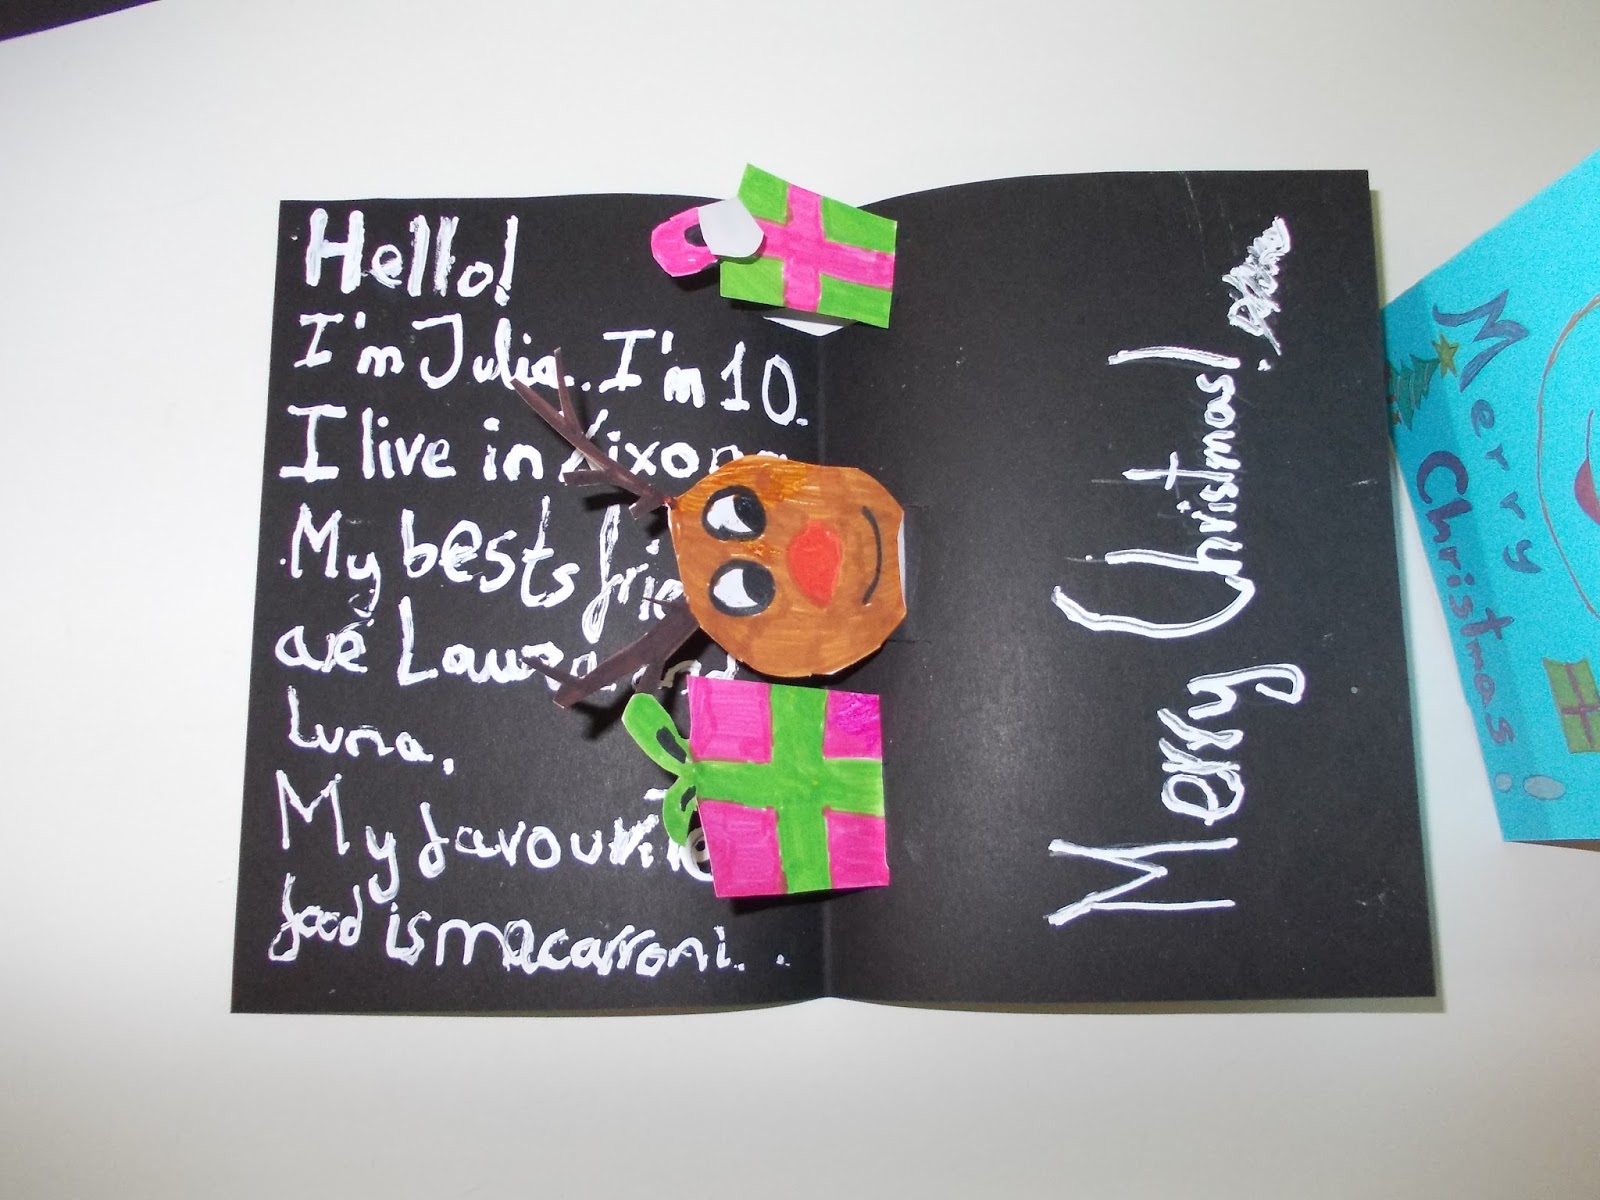 Hello!
I'm Julia. I'm 10.
I live in Xixona
My bests
are Laura and
Luna.
My favourite
food is macarroni...
Merry Christmas!
Merry
Christmas!